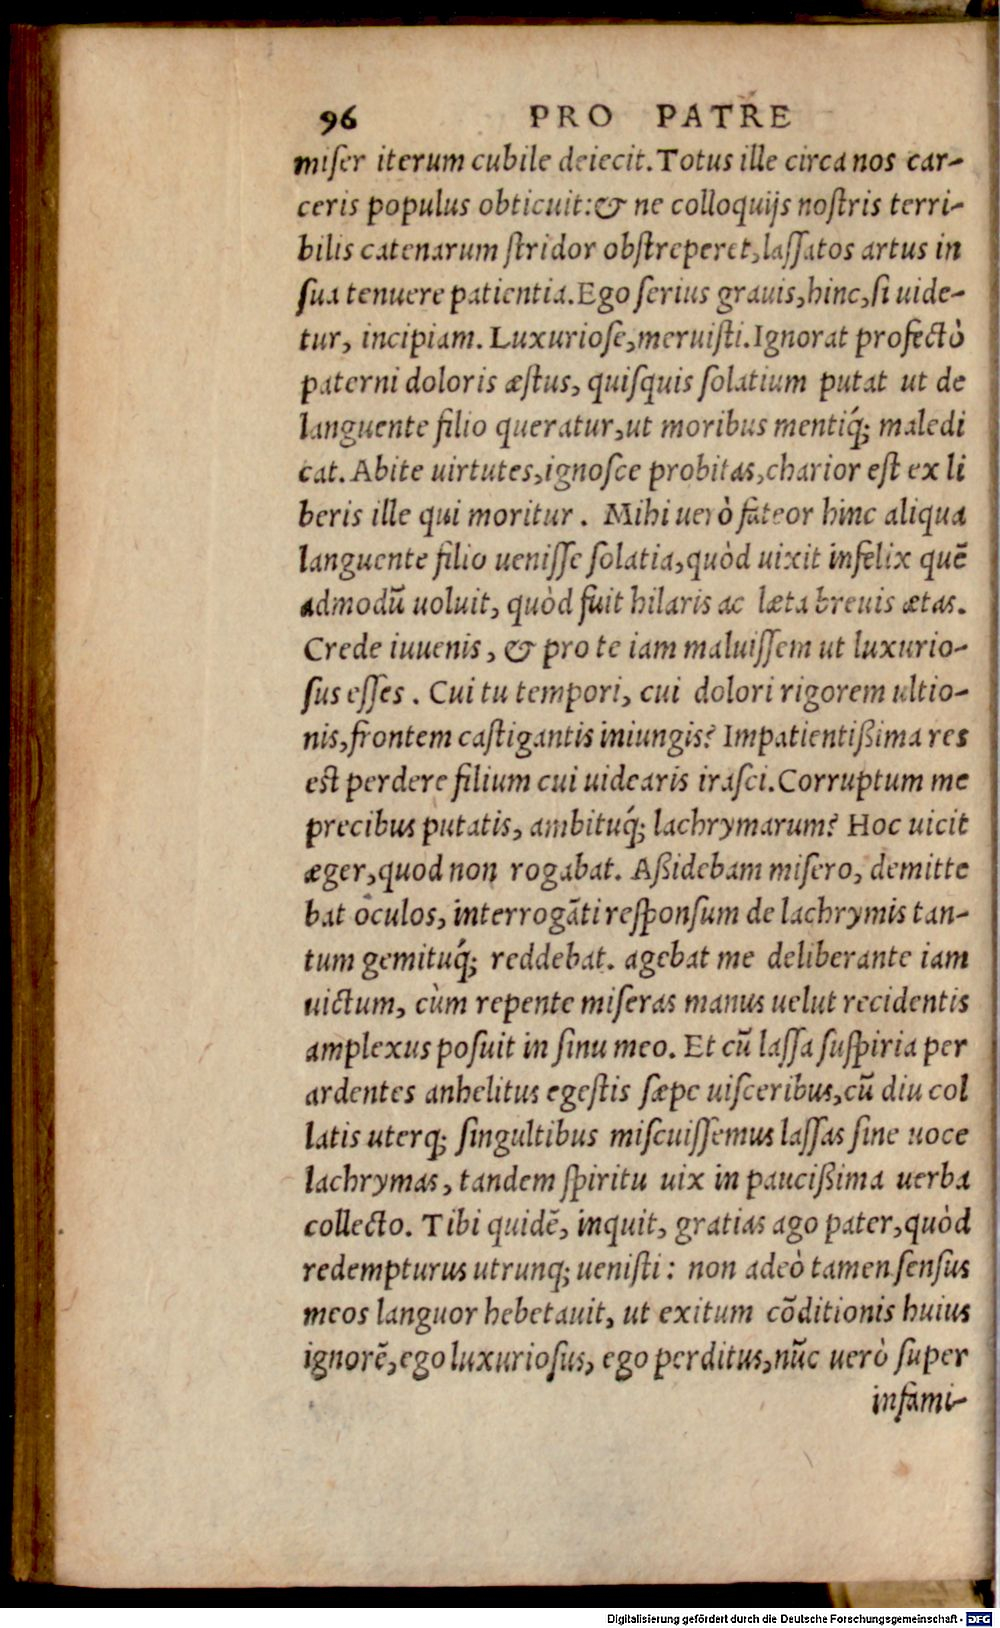 96 PRO PATRE
miser iterum cubile deiecit. Totus ille circa nos car-
ceris populus obticuit: & ne colloquijs nostris terri-
bilis catenarum stridor obstreperet, lassatos artus in
sua tenuere patientia. Ego serius grauis, hinc, si uide-
tur, incipiam. Luxuriose, meruisti. Ignorat profectò
paterni doloris æstus, quisquis solatium putat ut de
languente filio queratur, ut moribus mentiq́; maledi
cat. Abite uirtutes, ignosce probitas, charior est ex li
beris ille qui moritur. Mihi uerò fateor hinc aliqua
languente filio uenisse solatia, quòd uixit infelix quē
admodū uoluit, quòd fuit hilaris ac læta breuis ætas.
Crede iuuenis, & pro te iam maluissem ut luxurio-
sus esses. Cui tu tempori, cui dolori rigorem ultio-
nis, frontem castigantis iniungis? Impatientißima res
est perdere filium cui uidearis irasci. Corruptum me
precibus putatis, ambituq́; lachrymarum? Hoc uicit
æger, quod non rogabat. Aßidebam misero, demitte
bat oculos, interrogāti responsum de lachrymis tan-
tum gemituq́; reddebat. agebat me deliberante iam
uictum, cùm repente miseras manus uelut recidentis
amplexus posuit in sinu meo. Et cū lassa suspiria per
ardentes anhelitus egestis sæpe uisceribus, cū diu col
latis uterq; singultibus miscuissemus lassas sine uoce
lachrymas, tandem spiritu uix in paucißima uerba
collecto. Tibi quidē, inquit, gratias ago pater, quòd
redempturus utrunq; uenisti: non adeò tamen sensus
meos languor hebetauit, ut exitum cōditionis huius
ignorē, ego luxuriosus, ego perditus, nūc uerò super
infami-
Digitalisierung gefördert durch die Deutsche Forschungsgemeinschaft - DFG